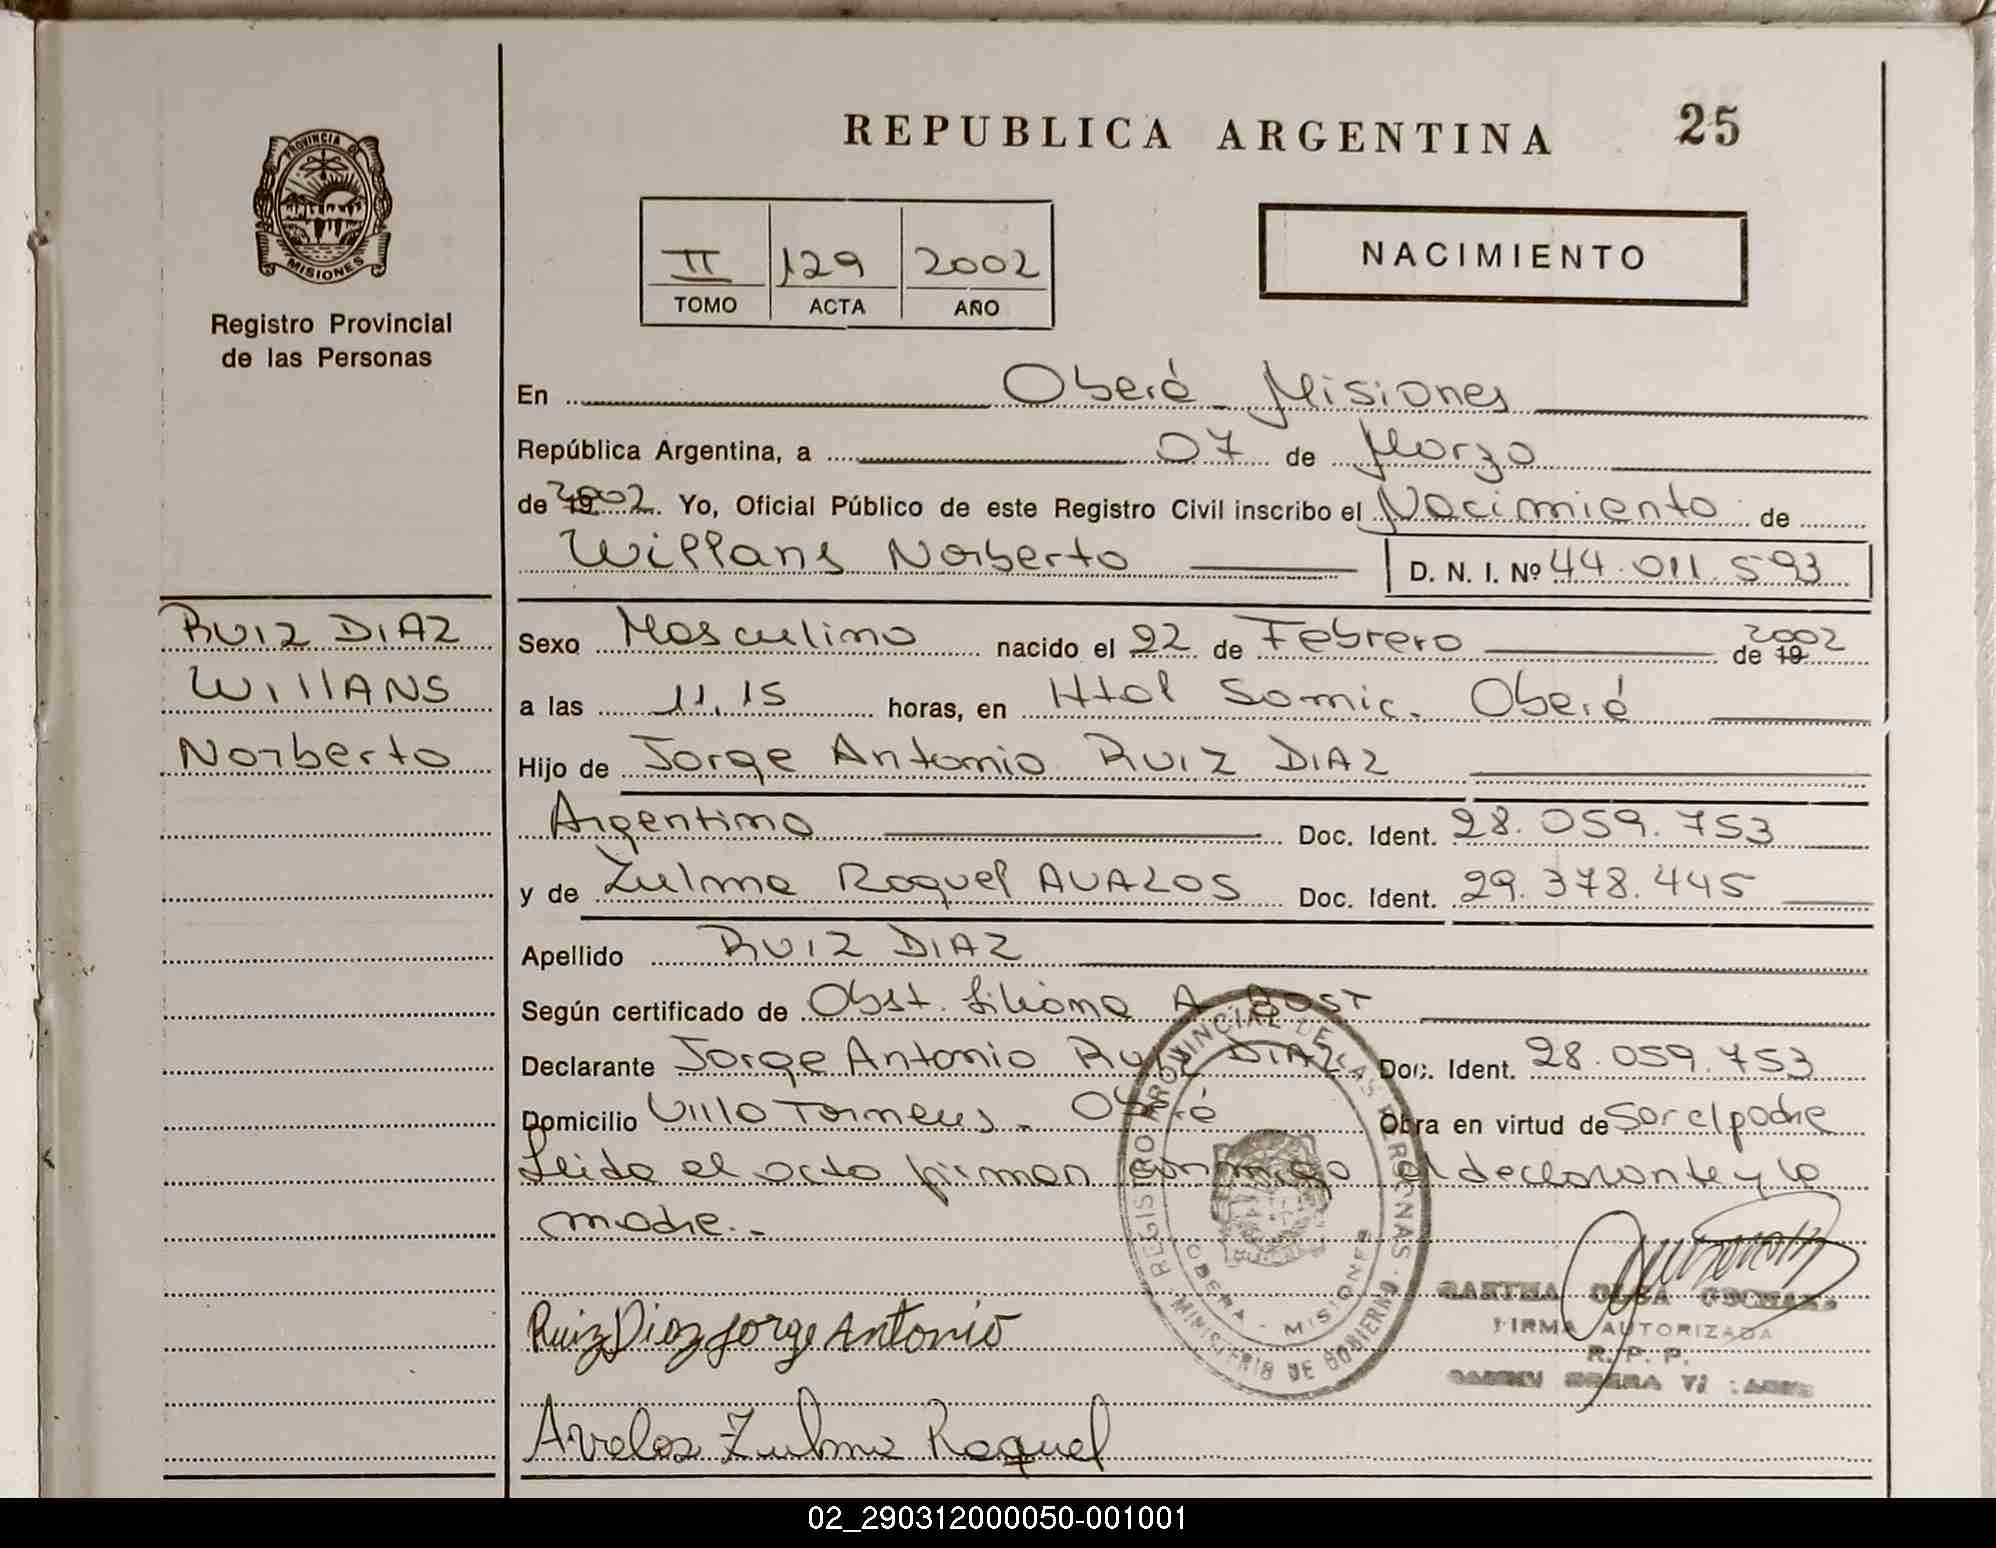 REPUBLICA ARGENTINA
25
PROVINCIA DE
MISIONES
Registro Provincial
de las Personas
II 129 2002
TOMO ACTA AÑO
NACIMIENTO
En Oberá - Misiones
República Argentina, a 07 de Marzo
de 2002. Yo, Oficial Público de este Registro Civil inscribo el Nacimiento de
Willans Norberto D. N. I. Nº 44.011.593
RUIZ DIAZ
WillANS
Norberto
Sexo Masculino nacido el 22 de Febrero de 19 2002
a las 11,15 horas, en Htal Samic. Oberá
Hijo de Jorge Antonio RUIZ DIAZ
Argentino Doc. Ident. 28.059.753
y de Zulma Raquel AVALOS Doc. Ident. 29.378.445
Apellido RUIZ DIAZ
Según certificado de Obst. Liliana A. BOST
Declarante Jorge Antonio Ruiz DIAZ Doc. Ident. 28.059.753
Domicilio Villa Torneus - Oberá Obra en virtud de Ser el padre
Leida el acta firman conmigo el declarante y la
madre.-
REGISTRO PROVINCIAL DE LAS PERSONAS
OBERA - MISIONES
MINISTERIO DE GOBIERNO
FIRMA AUTORIZADA
R. P. P.
Ruiz Diaz Jorge Antonio
Avalos Zulma Raquel
02_290312000050-001001